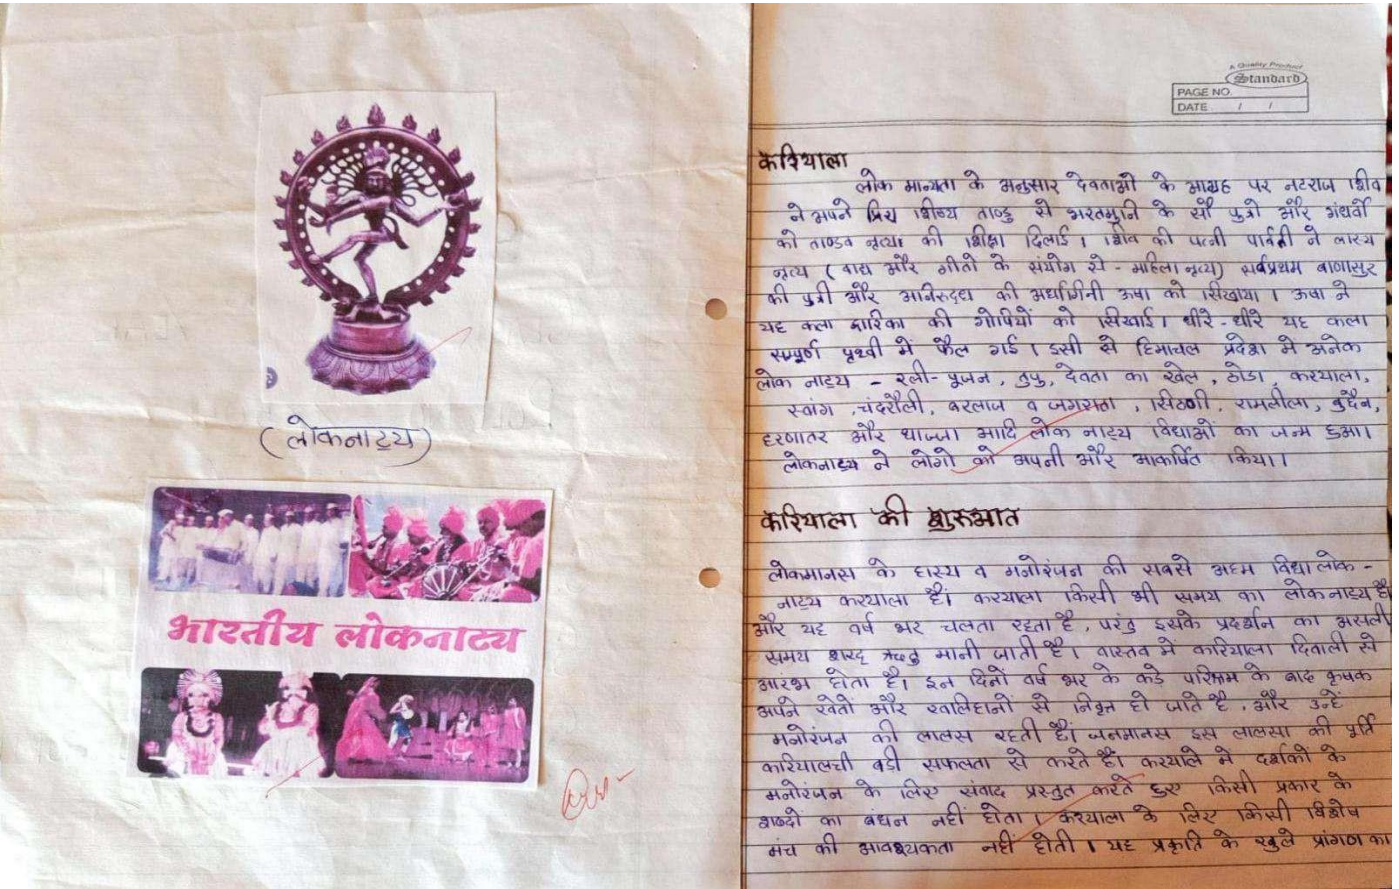 (लोकनाट्य)
भारतीय लोकनाट्य
A Quality Product
Standard
PAGE NO.
DATE / /
करियाला
लोक मान्यता के अनुसार देवताओ के आग्रह पर नटराज शिव
ने अपने प्रिय शिष्य ताण्डु से भरतमुनि के सौ पुत्रो और गंधर्वो
को ताण्डव नृत्य की शिक्षा दिलाई। शिव की पत्नी पार्वती ने लास्य
नृत्य (वाद्य और गीतो के संयोग से - महिला नृत्य) सर्वप्रथम बाणासुर
की पुत्री और अनिरुद्ध की अर्धांगिनी ऊषा को सिखाया। ऊषा ने
यह कला द्वारिका की गोपियों को सिखाई। धीरे-धीरे यह कला
सम्पूर्ण पृथ्वी में फैल गई। इसी से हिमाचल प्रदेश मे अनेक
लोक नाट्य - रली-पूजन, तुपु, देवता का खेल, ठोडा, करयाला,
स्वांग, चंदरौली, बरलाज व जगराता, सिठणी, रामलीला, बुद्दैन,
हरणातर और धाज्जा आदि लोक नाट्य विधाओं का जन्म हुआ।
लोकनाट्य ने लोगो को अपनी और आकर्षित किया।
करियाला की शुरुआत
लोकमानस के हास्य व मनोरंजन की सबसे अहम विधा लोक -
नाट्य करयाला है। करयाला किसी भी समय का लोकनाट्य है
और यह वर्ष भर चलता रहता है, परंतु इसके प्रदर्शन का असली
समय शरद ऋतु मानी जाती है। वास्तव मे करियाला दिवाली से
आरंभ होता है। इन दिनों वर्ष भर के कडे परिश्रम के बाद कृषक
अपने खेतों और खलिहानों से निवृत हो जाते है, और उन्हें
मनोरंजन की लालस रहती है। जनमानस इस लालसा की पूर्ति
करियालची बडी सफलता से करते है। करयाले मे दर्शको के
मनोरंजन के लिए संवाद प्रस्तुत करते हुए किसी प्रकार के
शब्दों का बंधन नहीं होता। करयाला के लिए किसी विशेष
मंच की आवश्यकता नहीं होती। यह प्रकृति के खुले प्रांगण का